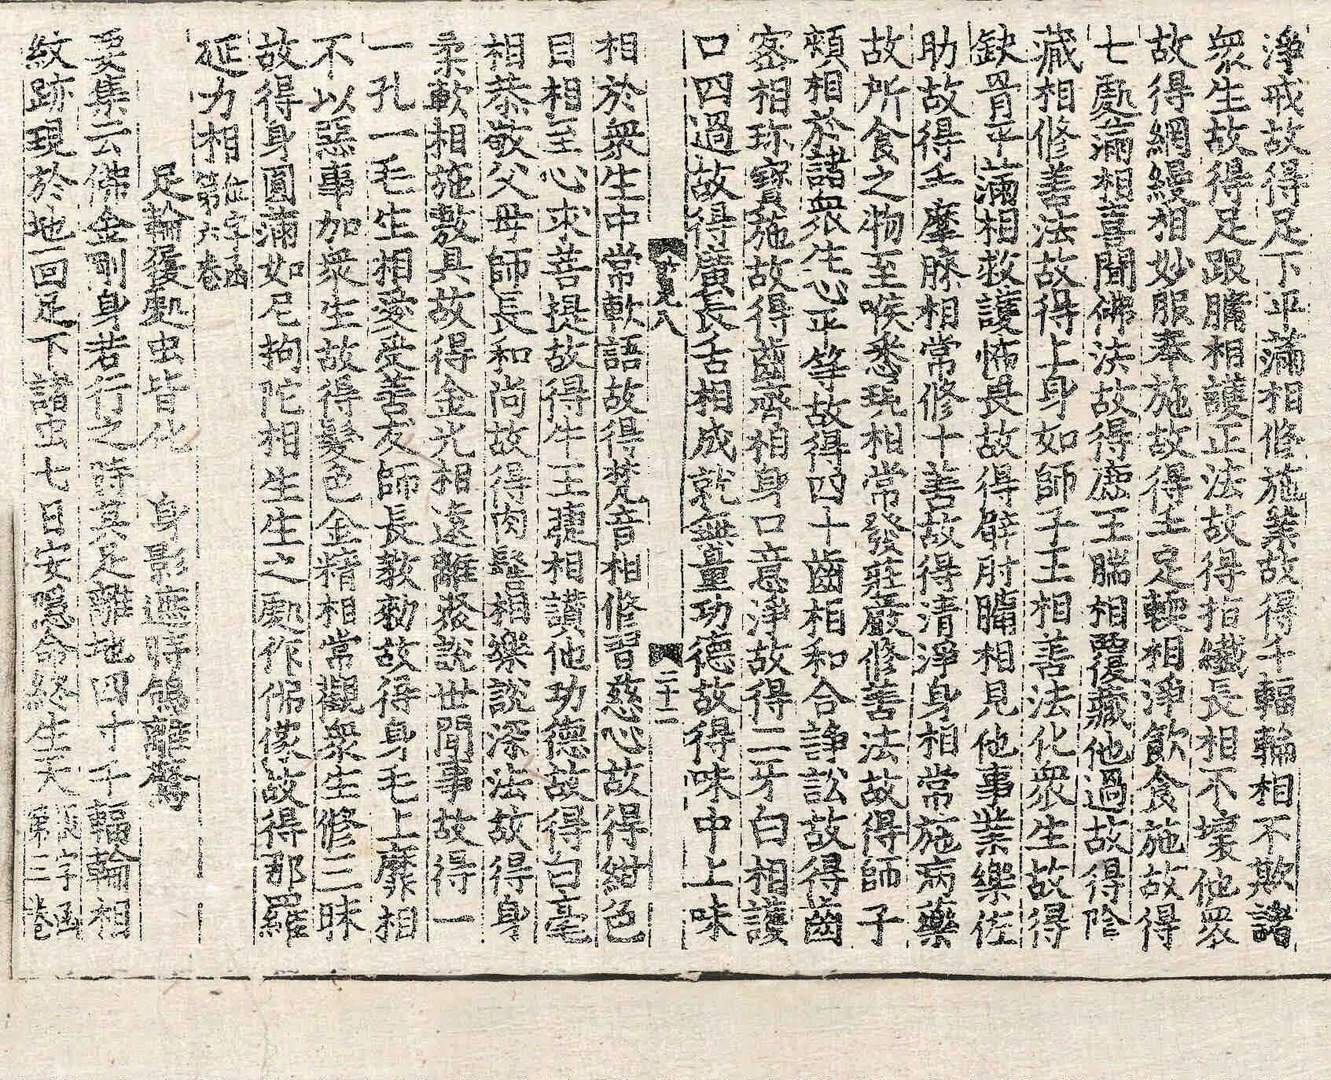 淨戒故得足下平滿相修施業故得千輻輪相不欺諸
衆生故得足跟𦟛相護正法故得指纖長相不壞他衆
故得網縵相妙服奉施故得手足輭相淨飲食施故得
七處滿相喜聞佛法故得鹿王腨相覆藏他過故得陰
藏相修善法故得上身如師子王相善法化衆生故得
缺骨平滿相救護怖畏故得臂肘𦟛相見他事業樂佐
助故得手摩膝相常修十善故得清淨身相常施病藥
故所食之物至喉悉現相常發莊嚴修善法故得師子
頰相於諸衆生心平等故得四十齒相和合諍訟故得齒
密相珎寶施故得齒齊相身口意淨故得二牙白相護
口四過故得廣長舌相成就無量功德故得味中上味
八
二十一
相於衆生中常軟語故得梵音相修習慈心故得紺色
目相至心求菩提故得牛王𥇒相讃他功德故得白毫
相恭敬父母師長和尚故得肉髻相樂說深法故得身
柔軟相施敷具故得金光相遠離衆說世間事故得一
一孔一毛生相愛受善友師長教勑故得身毛上靡相
不以惡事加衆生故得髮色金精相常觀衆生修三昧
故得身圓滿如尼拘陀相生生之處作佛像故得那羅
延力相 第六卷
足輪履處虫皆化 身影遮時鴿離驚
要集云佛金剛身若行之時其足離地四寸千輻輪相
紋跡現於地回足下諸虫七日安隱命終生天 字函第三卷